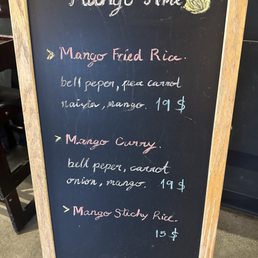 Mango Time
> Mango Fried Rice
bell peper, pea carrot
naixia, mango. 19 $
> Mango Curry.
bell peper, carrot
onion, mango. 19 $
> Mango Sticky Rice.
15 $